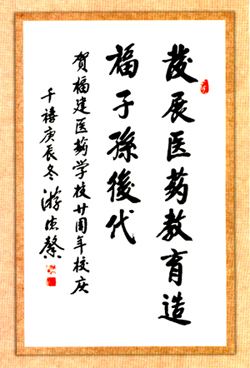 发展医药教育造
福子孫後代
贺福建医药学校廿周年校庆
千禧庚辰冬 游德馨